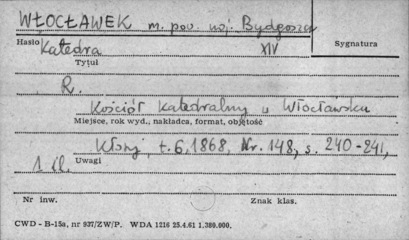 WŁOCŁAWEK m. pow. woj. Bydgoszcz
Hasło Katedra XIV Sygnatura
Tytuł
R.
Kościół Katedralny w Włocławku
Miejsce, rok wyd., nakładca, format, objętość
Kłosy, t. 6, 1868, Nr. 148, s. 240-241,
1 il. Uwagi
Nr inw. Znak klas.
CWD - B-15a, nr 937/ZW/P. WDA 1216 25.4.61 1.300.000.